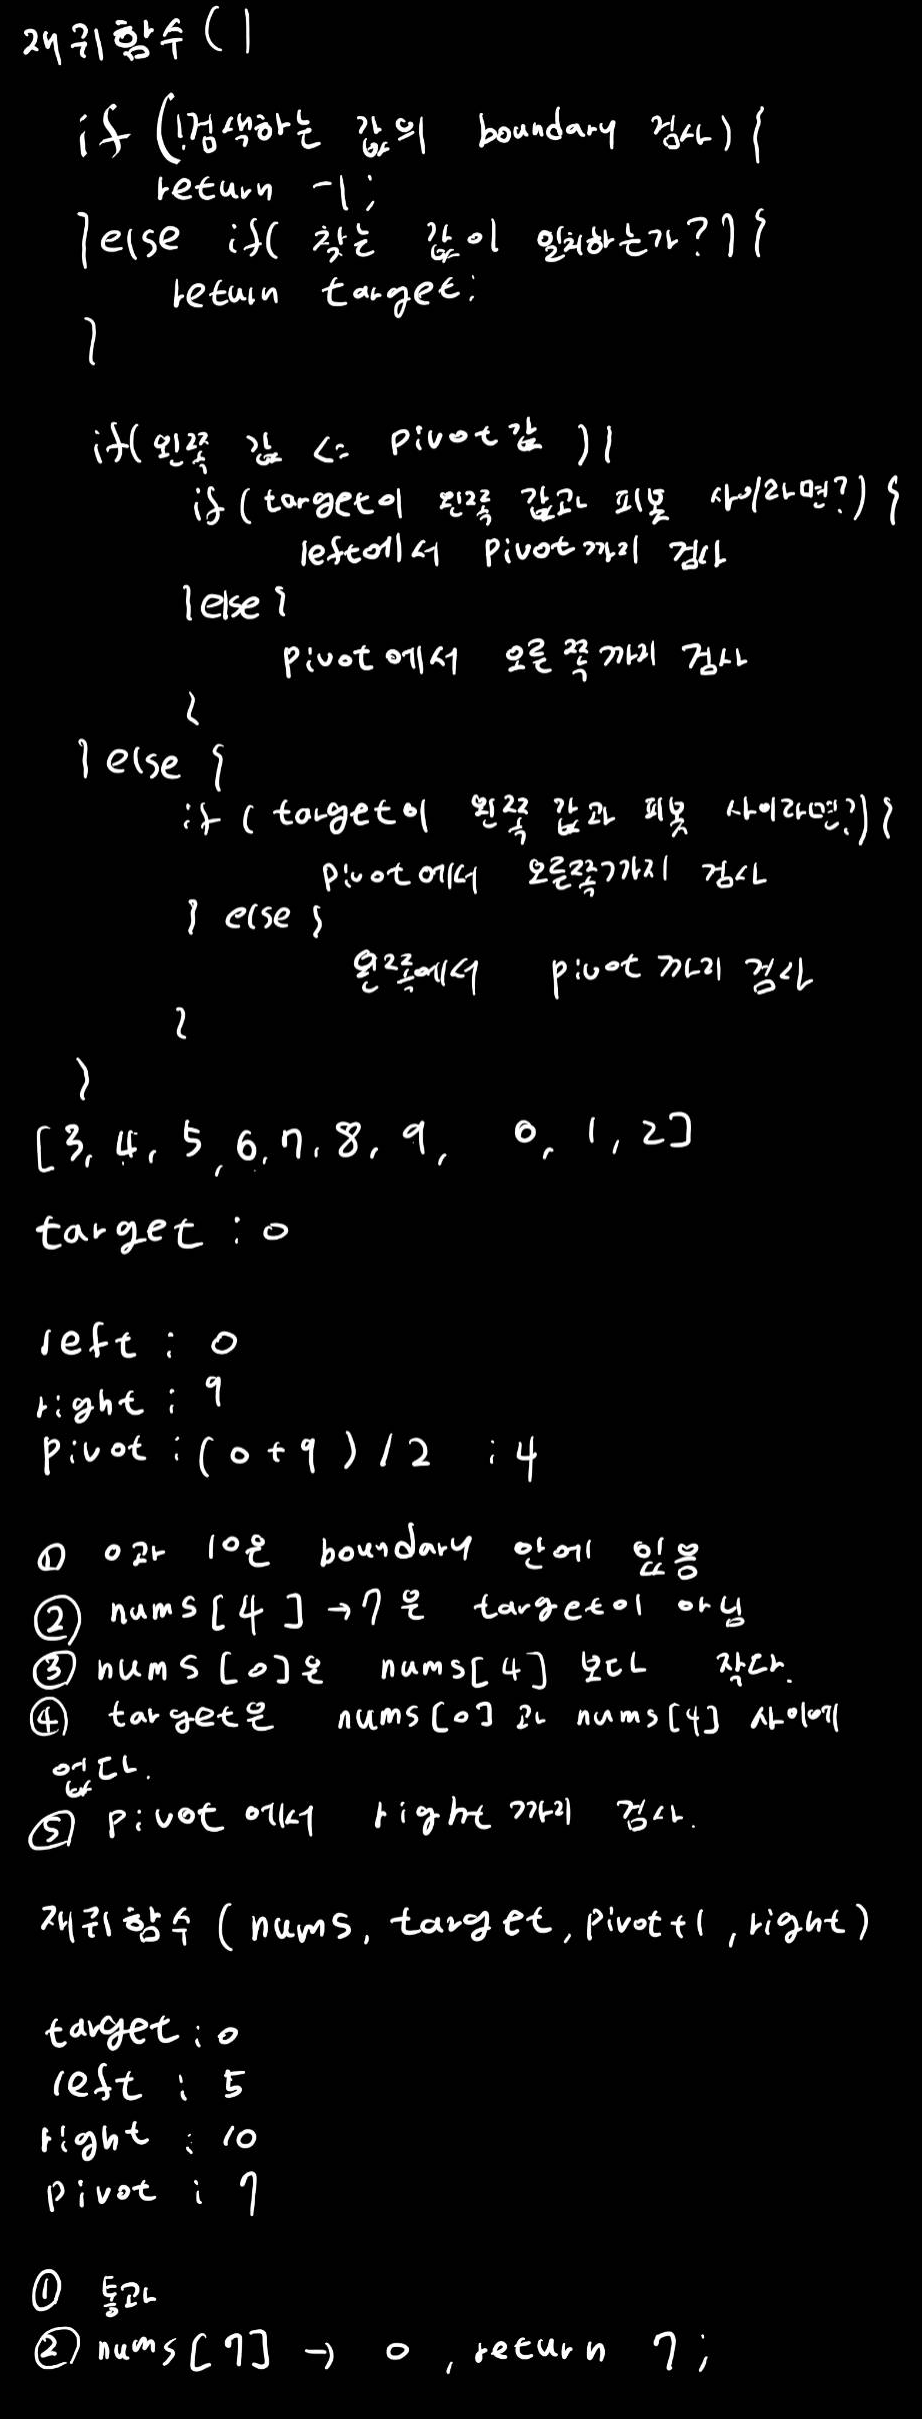 재귀함수 (|
if (!검색하는 값의 boundary 검사) {
return -1;
}else if( 찾는 값이 일치하는가?) {
return target;
}
if( 왼쪽 값 <= pivot 값 ) {
if ( target이 왼쪽 값과 피봇 사이라면?) {
left에서 pivot까지 검사
} else {
pivot에서 오른쪽까지 검사
}
} else {
if ( target이 왼쪽 값과 피봇 사이라면?) {
pivot에서 오른쪽까지 검사
} else {
왼쪽에서 pivot까지 검사
}
}
[3, 4, 5, 6, 7, 8, 9, 0, 1, 2]
target : 0
left : 0
right : 9
pivot : ( 0 + 9 ) / 2 : 4
① 0과 10은 boundary 안에 있음
② nums [ 4 ] → 7 은 target이 아님
③ nums [0]은 nums[4] 보다 작다.
④ target은 nums[0] 과 nums[4] 사이에
없다.
⑤ pivot 에서 right 까지 검사.
재귀함수 ( nums, target, pivot+1, right )
target : 0
left : 5
right : 10
pivot : 7
① 통과
② nums [7] → 0 , return 7 ;